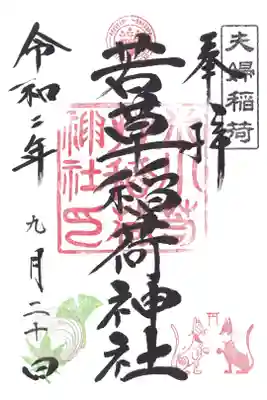 夫婦稲荷
奉拝
若草稲荷神社
令和二年
九月二十日